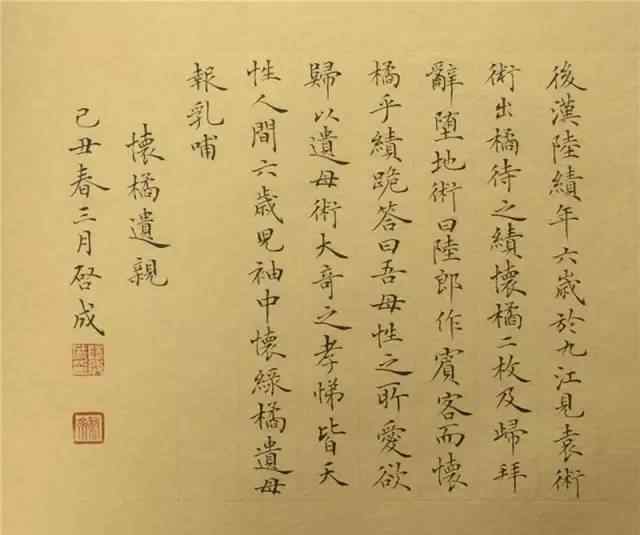 後漢陸績年六歲於九江見袁術
術出橘待之績懷橘二枚及歸拜
辭墮地術曰陸郎作賓客而懷
橘乎績跪答曰吾母性之所愛欲
歸以遺母術大奇之孝悌皆天
性人間六歲児袖中懷綠橘遺母
報乳哺
懷橘遺親
己丑春三月啓成